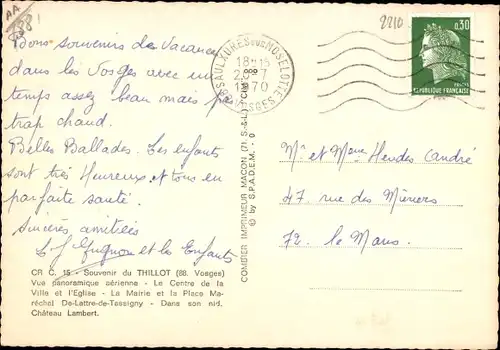 AA
88
Bons souvenirs de Vacances
dans les Vosges avec un
temps assez beau mais pas
trop chaud.
Belles Ballades. Les enfants
sont très Heureux et tous en
parfaite santé.
Sincères amitiés
et les Enfants
CR C. 15 - Souvenir du THILLOT (88. Vosges)
Vue panoramique aérienne - Le Centre de la
Ville et l'Eglise - La Mairie et la Place Ma-
réchal De-Lattre-de-Tassigny - Dans son nid,
Château Lambert.
COMBIER IMPRIMEUR MACON (71. S.-&-L.) "CIM"
© by S.P.A.D.E.M. - 0
SAULXURES SUR MOSELOTTE
18H15
1970
VOSGES
2210
0,30
REPUBLIQUE FRANÇAISE
Mr et Mme Hendes André
47 rue des Mûriers
72. le Mans.